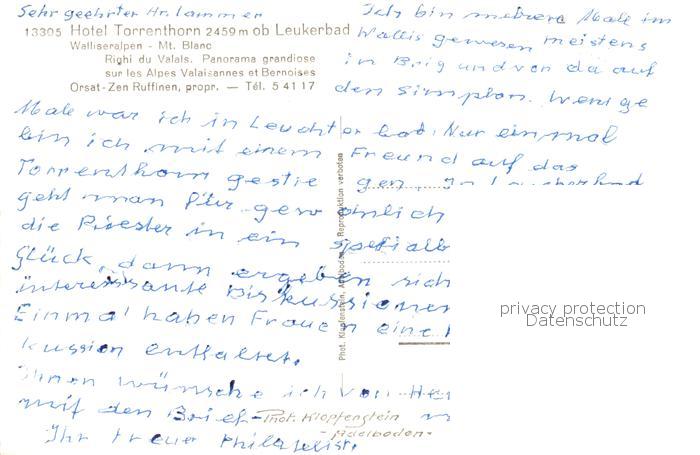 Sehr geehrter Hr. Lammer
13305 Hotel Torrenthorn 2459 m ob Leukerbad
Walliseralpen - Mt. Blanc
Righi du Valais. Panorama grandiose
sur les Alpes Valaisannes et Bernoises
Orsat-Zen Ruffinen, propr. — Tél. 5 41 17
Ich bin mehrere Male im
Wallis gewesen meistens
in Brig und von da auf
den Simplon. Wenige
Male war ich in Leuchterbad. Nur einmal
bin ich mit einem Freund auf das
Torrenthorn gestiegen. In Leucherbad
geht man für gewöhnlich
die Priester in ein
Glück, dann ergeben sich
interessante Diskussionen
Einmal haben Frauen eine
kussion entfaltet.
Ihnen wünsche ich von
mit den Brief-
Ihr treuer Philatelist.
Phot. Klopfenstein
- Adelboden -
Phot. Klopfenstein, Adelboden. Reproduktion verboten
privacy protection
Datenschutz